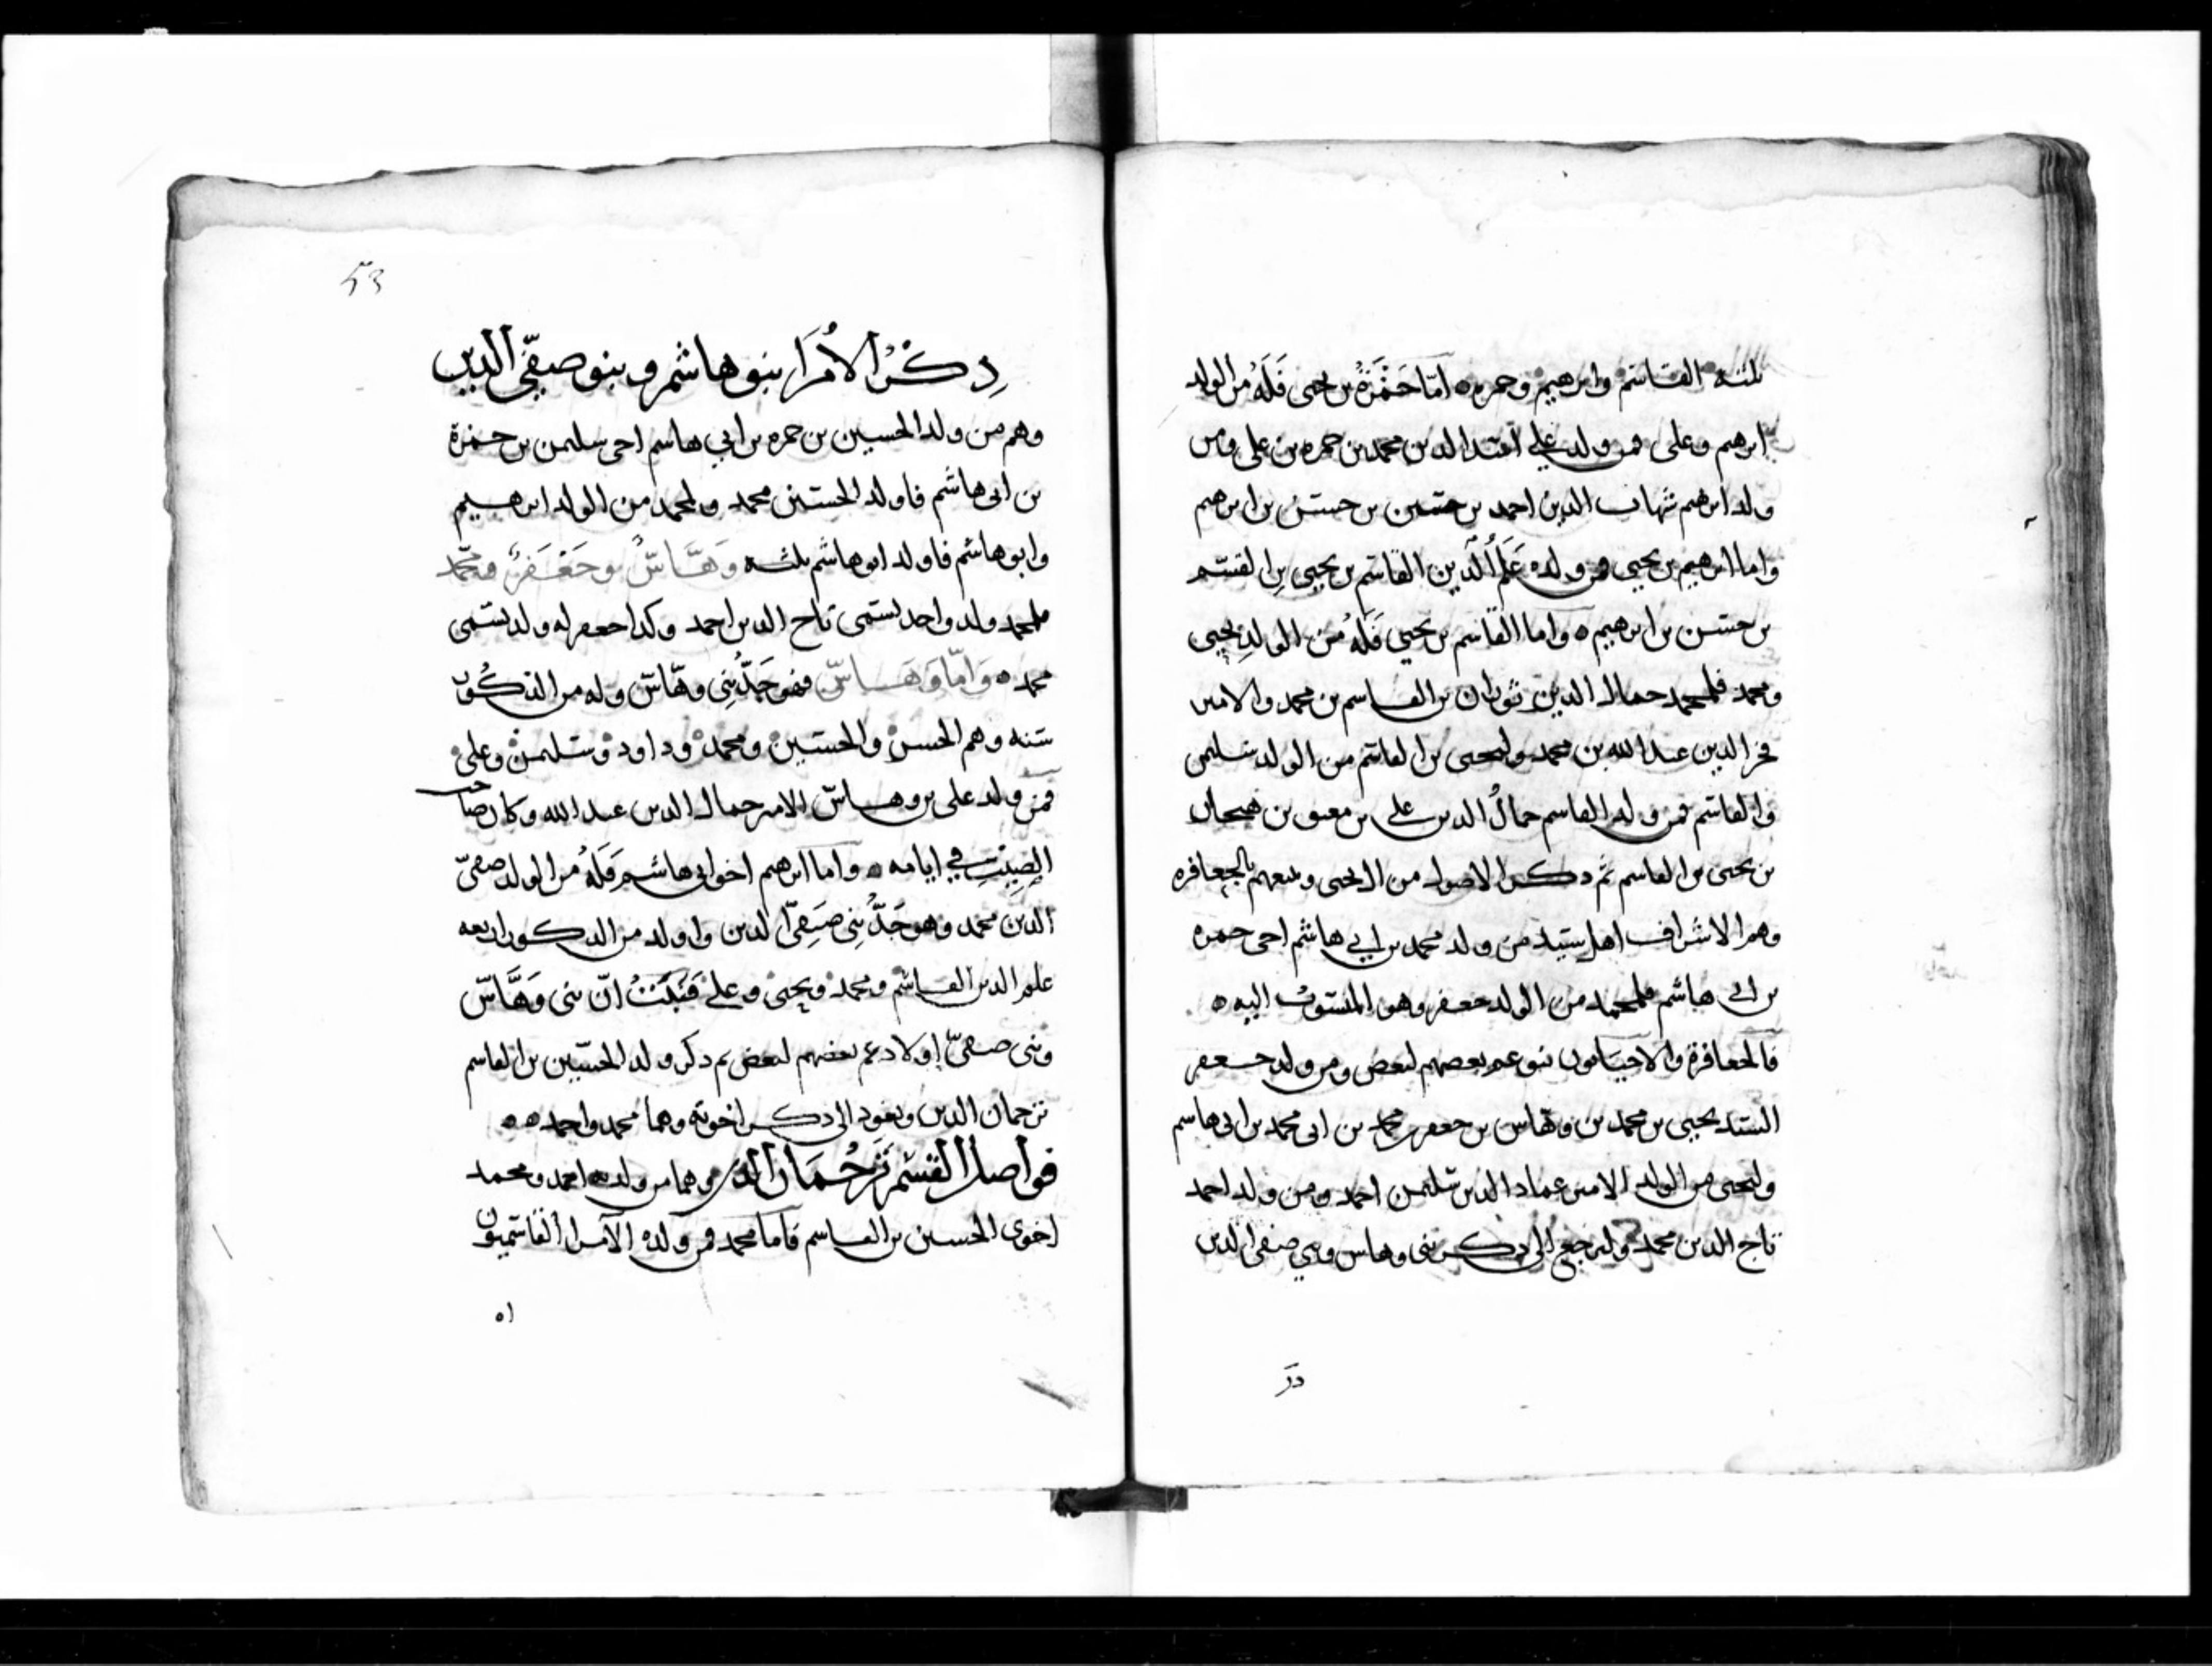 ثلثه القاسم وابرهيم وحمزه ٥ امّا حَمْزَةُ بن يحيى فَلَهُ من الولد
ابرهيم وعلى فمن ولد علي الدين محمد بن حمزه بن على ومن
ولد ابرهيم شهاب الدين احمد بن حسين بن حسن بن ابرهيم
واما ابرهيم بن يحيى فمن ولده عَلَمُ الدين القاسم بن يحيى بن القسم
بن حسن بن ابرهيم ٥ واما القاسم بن يحيى فَلَهُ من الولدِ يحيى
ومحمد فلمحمد جمال الدين بن القاسم بن محمد والامير
فخر الدين عبد الله بن محمد وليحيى بن القاسم من الولد سليمن
والقاسم فمن ولد القاسم جمالُ الدين على بن بن
بن يحيى بن القاسم ثم ذكر الاصول من ال يحيى ومنهم الجعافره
وهم الاشراف اهل من ولد محمد بن ابي هاشم اخى حمزه
بن ابى هاشم فلمحمد من الولد جعفر وهو المنسوب اليه ٥
فالجعافرة بنو عم بعضهم لبعض ومن ولد جعفر
السيد يحيى بن محمد بن وهاس بن جعفر بن محمد بن ابى محمد بن ابى هاشم
وليحيى من الولد الامير عماد الدين سليمن احمد ومن ولد احمد
تاج الدين محمد ولنرجع الى ذكر بنى وهاس وبني صفى الدين
53
ذِكْرُ الاُمَرَا بنو هاشم وبنو صفّى الدين
وهم من ولد الحسين بن حمزه بن ابي هاشم اخى سليمن بن حمزة
بن ابى هاشم فاولد الحسين محمد ولمحمد من الولد ابرهيم
وابو هاشم فاولد ابو هاشم ثلثه وَهَّاسٌ وجَعْفَرٌ ومحمّد
فلمحمد ولد واحد يسمى تاج الدين احمد وكذا جعفر له ولد يسمى
محمد ٥ وَامّا وَهَاسّ فهو جَدُّ بَنِي وهّاسّ وله من الذكُور
سته وهم الحسن والحسين ومحمد وداود وسليمن وعلى
فمن ولد على بن وهاسّ الامير جمال الدين عبد الله وكان صاحب
الصِيتِ في ايامه ٥ واما ابرهيم اخو ابى هاشم فَلَهُ من الولد صفىّ
الدين محمد وهو جَدُّ بَنِي صَفِىّ الدين واولد من الذكور اربعه
علم الدين القاسم ومحمد ويحيى وعلى فَثَبَتَ انّ بنى وَهَّاسّ
وبنى صفىّ اولاد عم بعضهم لبعض ثم ذكر ولد الحسين بن القاسم
ترجمان الدين ونعود الى ذكر اخوته وهما محمد واحمد ٥٥
فواصل القسم تَرْجُمَان الدين وهما من ولده احمد ومحمد
اخوى الحسين بن القاسم فاما محمد فمن ولده الامرا القاسميون
٥١